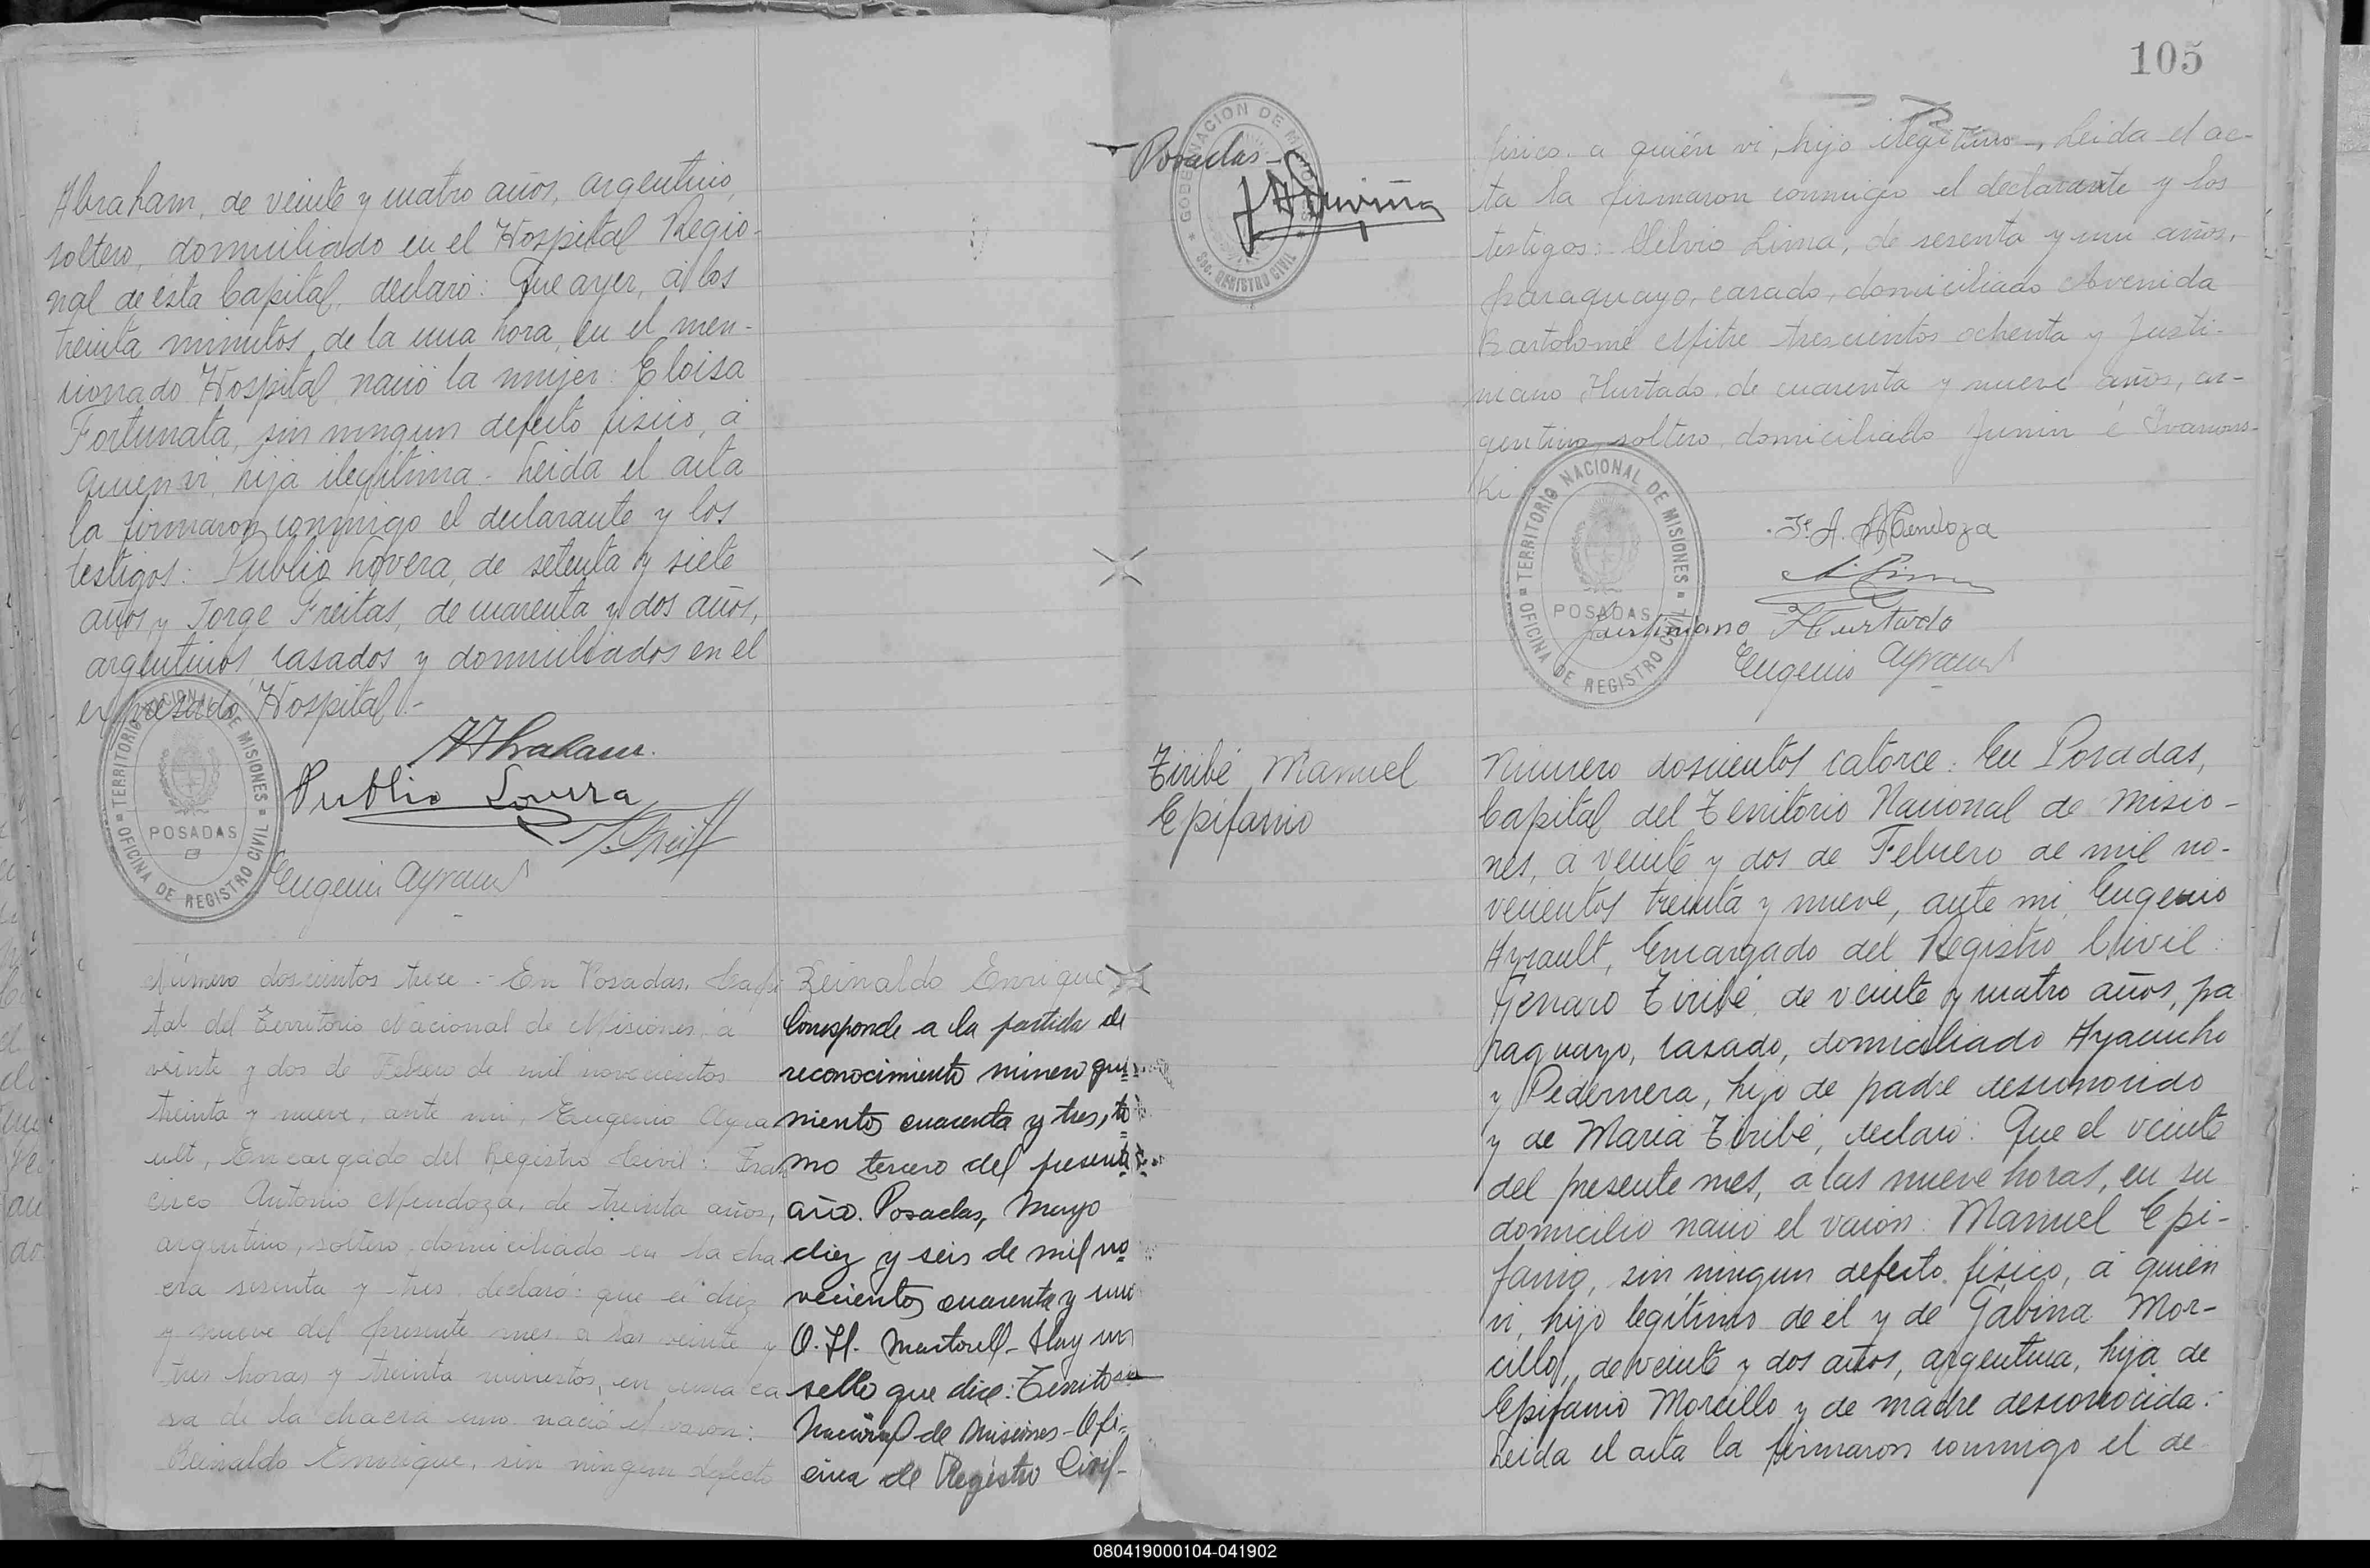 Abraham, de veinte y cuatro años, argentino,
soltero, domiciliado en el Hospital Regio-
nal de ésta Capital, declaró: Que ayer, á los
treinta minutos de la una hora, en el men-
cionado Hospital, nació la mujer: Eloisa
Fortunata, sin ningun defecto físico, á
quien vi, hija ilegítima.- Leida el acta
la firmaron conmigo el declarante y los
testigos: Publio Lovera, de setenta y siete
años, y Jorge Freitas, de cuarenta y dos años,
argentinos, casados y domiciliados en el
expresado Hospital.-
TERRITORIO NACIONAL DE MISIONES
POSADAS
OFICINA DE REGISTRO CIVIL
A Abraham.
Publio Lovera
Eugenio Ayrault
Número doscientos trece.- En Posadas, Capi
tal del Territorio Nacional de Misiones, á
veinte y dos de Febrero de mil novecientos
treinta y nueve, ante mi, Eugenio Ayra
ult, Encargado del Registro Civil: Fran
cisco Antonio Mendoza, de treinta años,
argentino, soltero, domiciliado en la cha
cra sesenta y tres, declaró: que el diez
y nueve del presente mes a las veinte y
tres horas y treinta minutos, en una ca
sa de la chacra uno nació el varon:
Reinaldo Enrique, sin ningun defecto
Reinaldo Enrique
Corresponde a la partida de
reconocimiento número qui
nientos cuarenta y tres, to
mo tercero del presente
año. Posadas, Mayo
diez y seis de mil no
vecientos cuarenta y uno
O. H. Martorell - Hay un
sello que dice: Territorio
Nacional de Misiones - Ofi-
cina de Registro Civil -
105
GOBERNACION DE MISIONES
Sec. REGISTRO CIVIL
Posadas -
físico. a quién vi, hijo ilegítimo -, Leida el ac-
ta la firmaron conmigo el declarante y los
testigos: Silvio Lima, de sesenta y un años,
paraguayo, casado, domiciliado Avenida
Bartolomé Mitre trescientos ochenta y Justi-
niano Hurtado de cuarenta y nueve años, ar-
gentino, soltero, domiciliado Junin é Ivanows-
Ki
TERRITORIO NACIONAL DE MISIONES
POSADAS
OFICINA DE REGISTRO CIVIL
Fº A. Mendoza
S. Lima
Justiniano Hurtado
Eugenio Ayrault
Tiribé Manuel
Epifanio
Número doscientos catorce: En Posadas,
Capital del Territorio Nacional de Misio-
nes, á veinte y dos de Febrero de mil no-
vecientos treinta y nueve, ante mi, Eugenio
Ayrault, Encargado del Registro Civil:
Genaro Tiribé, de veinte y cuatro años, pa
raguayo, casado, domiciliado Ayacucho
y Pedernera, hijo de padre desconocido
y de Maria Tiribé, declaró: Que el veinte
del presente mes, a las nueve horas, en su
domicilio nació el varón: Manuel Epi-
fanio, sin ningun defecto físico, á quien
vi, hijo legítimo de él y de Gabina Mor-
cillo, de veinte y dos años, argentina, hija de
Epifanio Morcillo y de madre desconocida.-
Leida el acta la firmaron conmigo el de
080419000104-041902